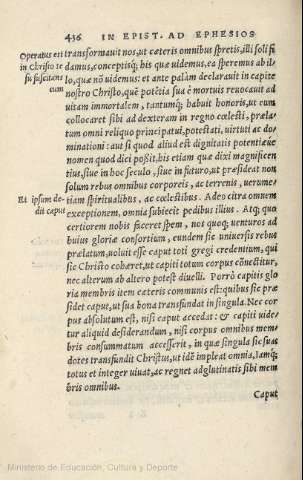 436 IN EPIST. AD EPHESIOS
Operatus est
in Christo
su suscitans
eum
transformauit nos, ut cæteris omnibus spretis, illi soli fi
damus, conceptisq; his quæ uidemus, ea speremus ab il-
lo, quæ nõ uidemus: et ante palàm declarauit in capite
nostro Christo, quẽ potẽtia sua è mortuis reuocauit ad
uitam immortalem, tantumq; habuit honoris, ut eum
collocaret sibi ad dexteram in regno cœlesti, præla-
tum omni reliquo principatui, potestati, uirtuti ac do-
minationi: aut si quod aliud est dignitatis potentiæue
nomen quod dici possit, his etiam quæ dixi magnificen
tius, siue in hoc seculo, siue in futuro, ut præsideat non
solum rebus omnibus corporeis, ac terrenis, uerume-
Et ipsum de-
dit caput
tiam spiritualibus, ac cœlestibus. Adeo citra omnem
exceptionem, omnia subiecit pedibus illius. Atq; quo
certiorem nobis faceret spem, nos quoq; uenturos ad
huius gloriæ consortium, eundem sic uniuersis rebus
prælatum, uoluit esse caput toti gregi credentium, qui
sic Christo cohæret, ut capiti totum corpus cõnectitur,
nec alterum ab altero potest diuelli. Porrò capitis glo
ria membris item cæteris communis est: quibus sic præ
sidet caput, ut sua bona transfundat in singula. Nec cor
pus absolutum est, nisi caput accedat: & capiti uide-
tur aliquid desiderandum, nisi corpus omnibus mem-
bris consummatum accesserit, in quæ singula sic suas
dotes transfundit Christus, ut idẽ impleat omnia, iamq;
totus et integer uiuat, ac regnet adglutinatis sibi mem
bris omnibus.
Caput
Ministerio de Educación, Cultura y Deporte